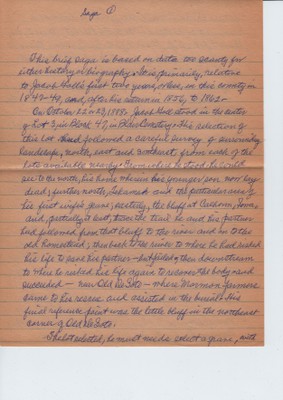 Saga ①
This brief saga is based on data too scanty for
either history or biography. It is, primarily, relative
to Jacob Gall's first two years, or less, in this county in
1847-49, and, after his return in 1856, to 1862-
On October 22 or 23, 1888, Jacob Gall stood in the center
of Lot 3, in Block 47, in Blair Cemetery. His selection of
this lot had followed a careful survey of surrounding
landscape, north, east and southeast, from each of the
lots available nearby. From where he stood he could
see to the north, his home wherein his younger son now lay
dead; further north, Tekamah and the potted area of
his first wife's grave; easterly, the bluff at Calhoun, Iowa,
and, partially at least, trace the trail he and his partner
had followed from that bluff to the river and on to the
old homestead; then back to the river to where he had risked
his life to save his partner - but failed; then downstream
to where he risked his life again to recover the body and
succeeded - near Old De Soto - where Mormon farmers
came to his rescue and assisted in the burial. His
final reference point was the little bluff in the northeast
corner of Old De Soto.
The lot selected, he must needs select a grave, with